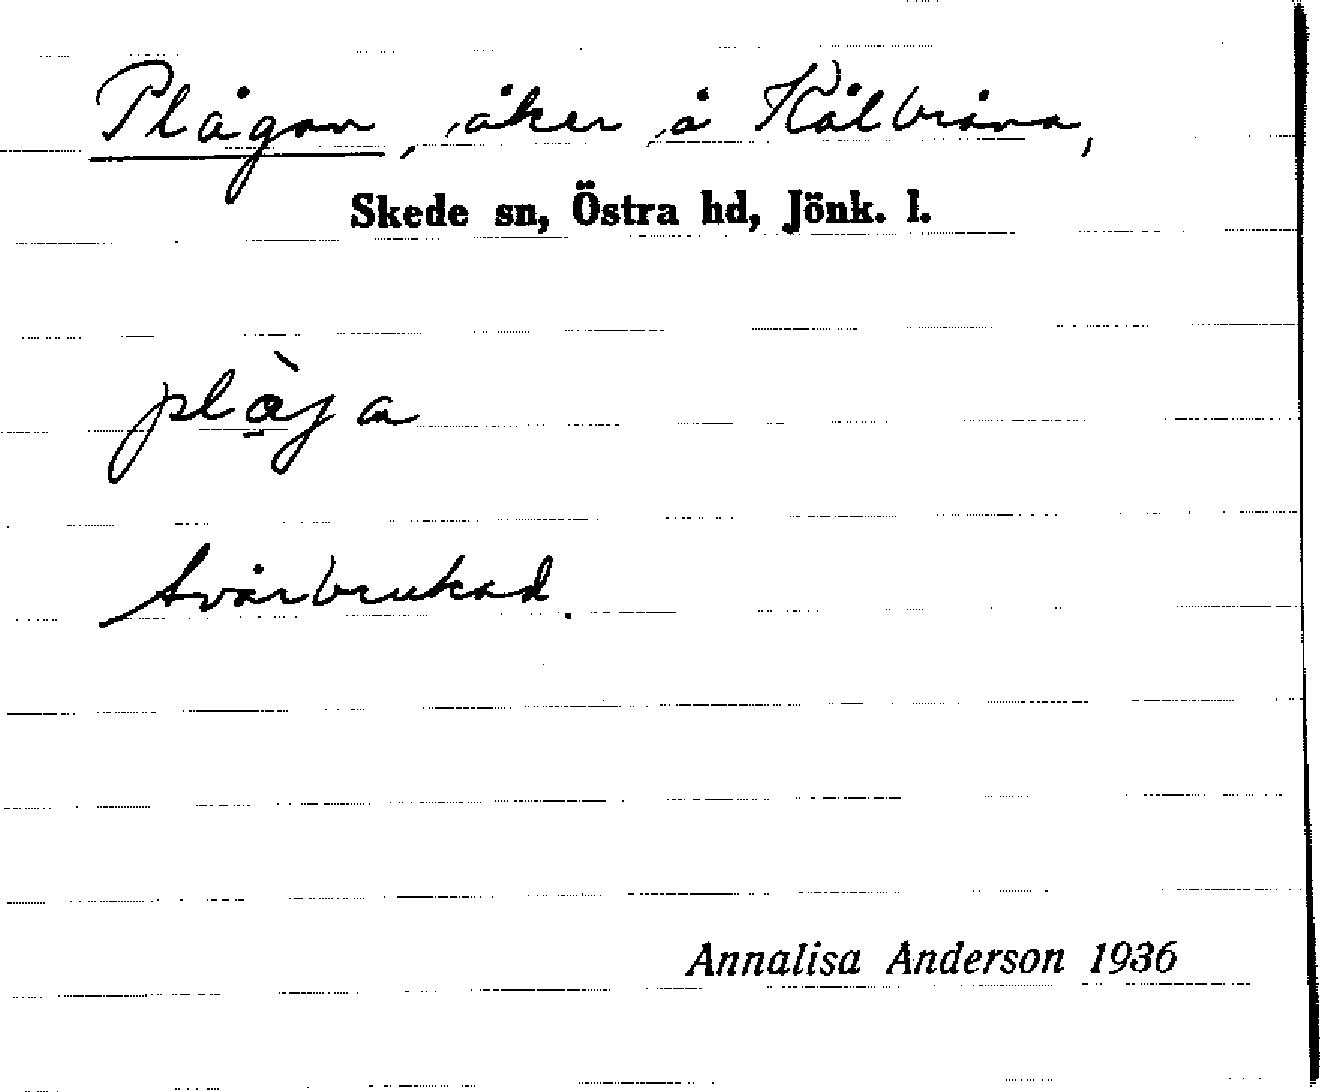 Plågan, åker å Kålbråna,
Skede sn, Östra hd, Jönk. l.
plå̀ja
Svårbrukad.
Annalisa Anderson 1936